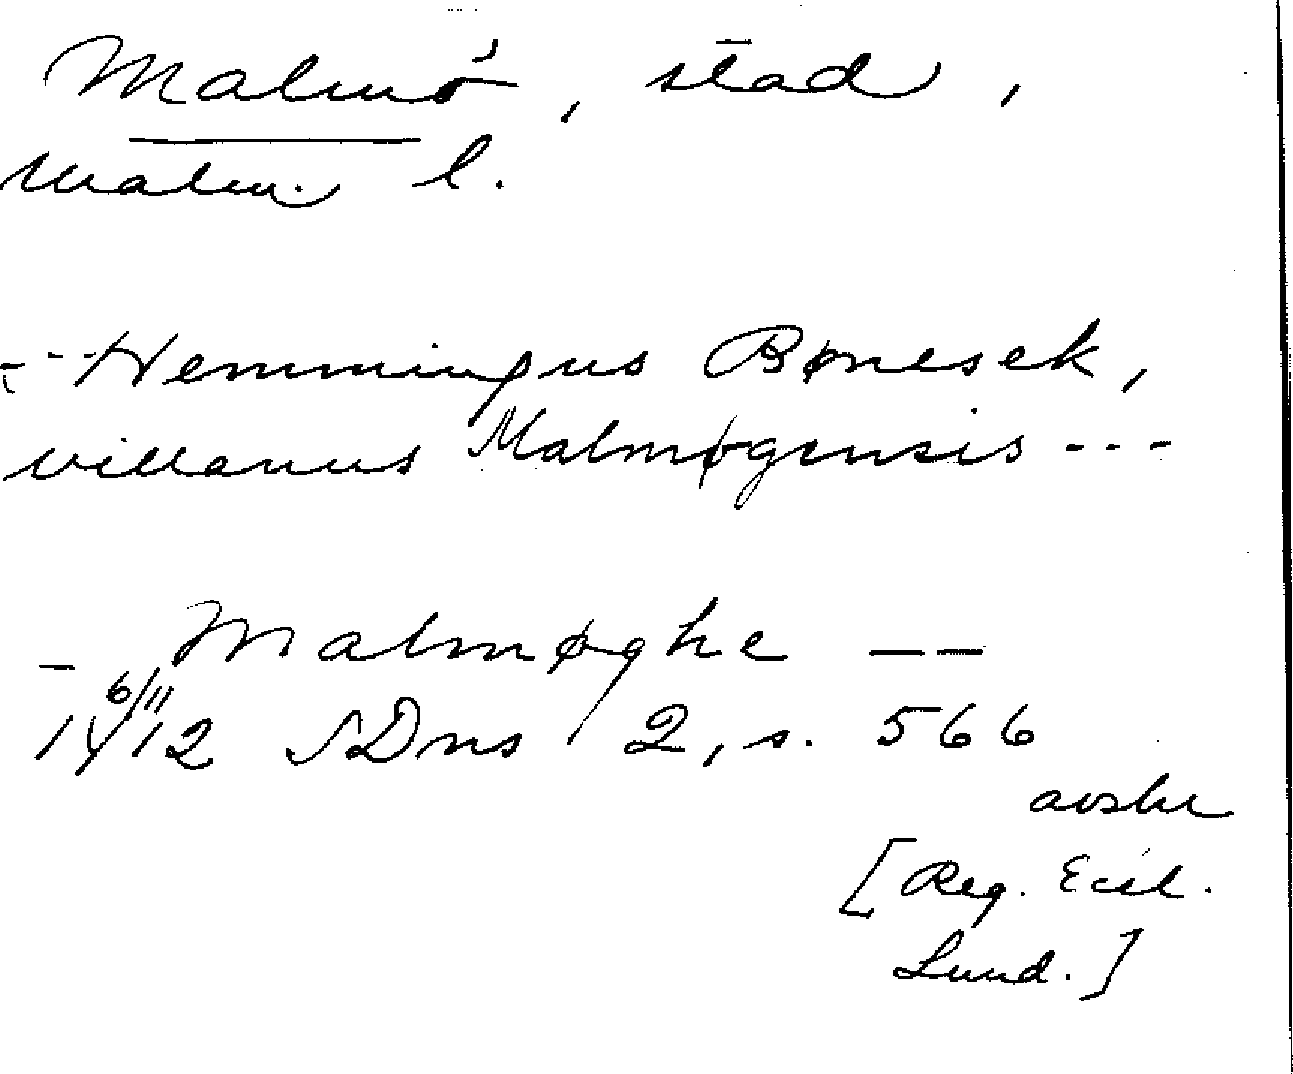 Malmö, stad,
Malm. l.
--- Hemmingus Bønesek,
villanus Malmøgensis ---
- Malmøghe --
6/11
1412 SDns 2, s. 566
avskr
[Reg. Eccl.
Lund.]